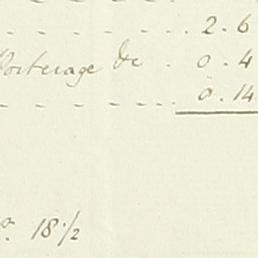 2 . 6
Porterage &c . 0 . 4
0 . 14
18 1/2